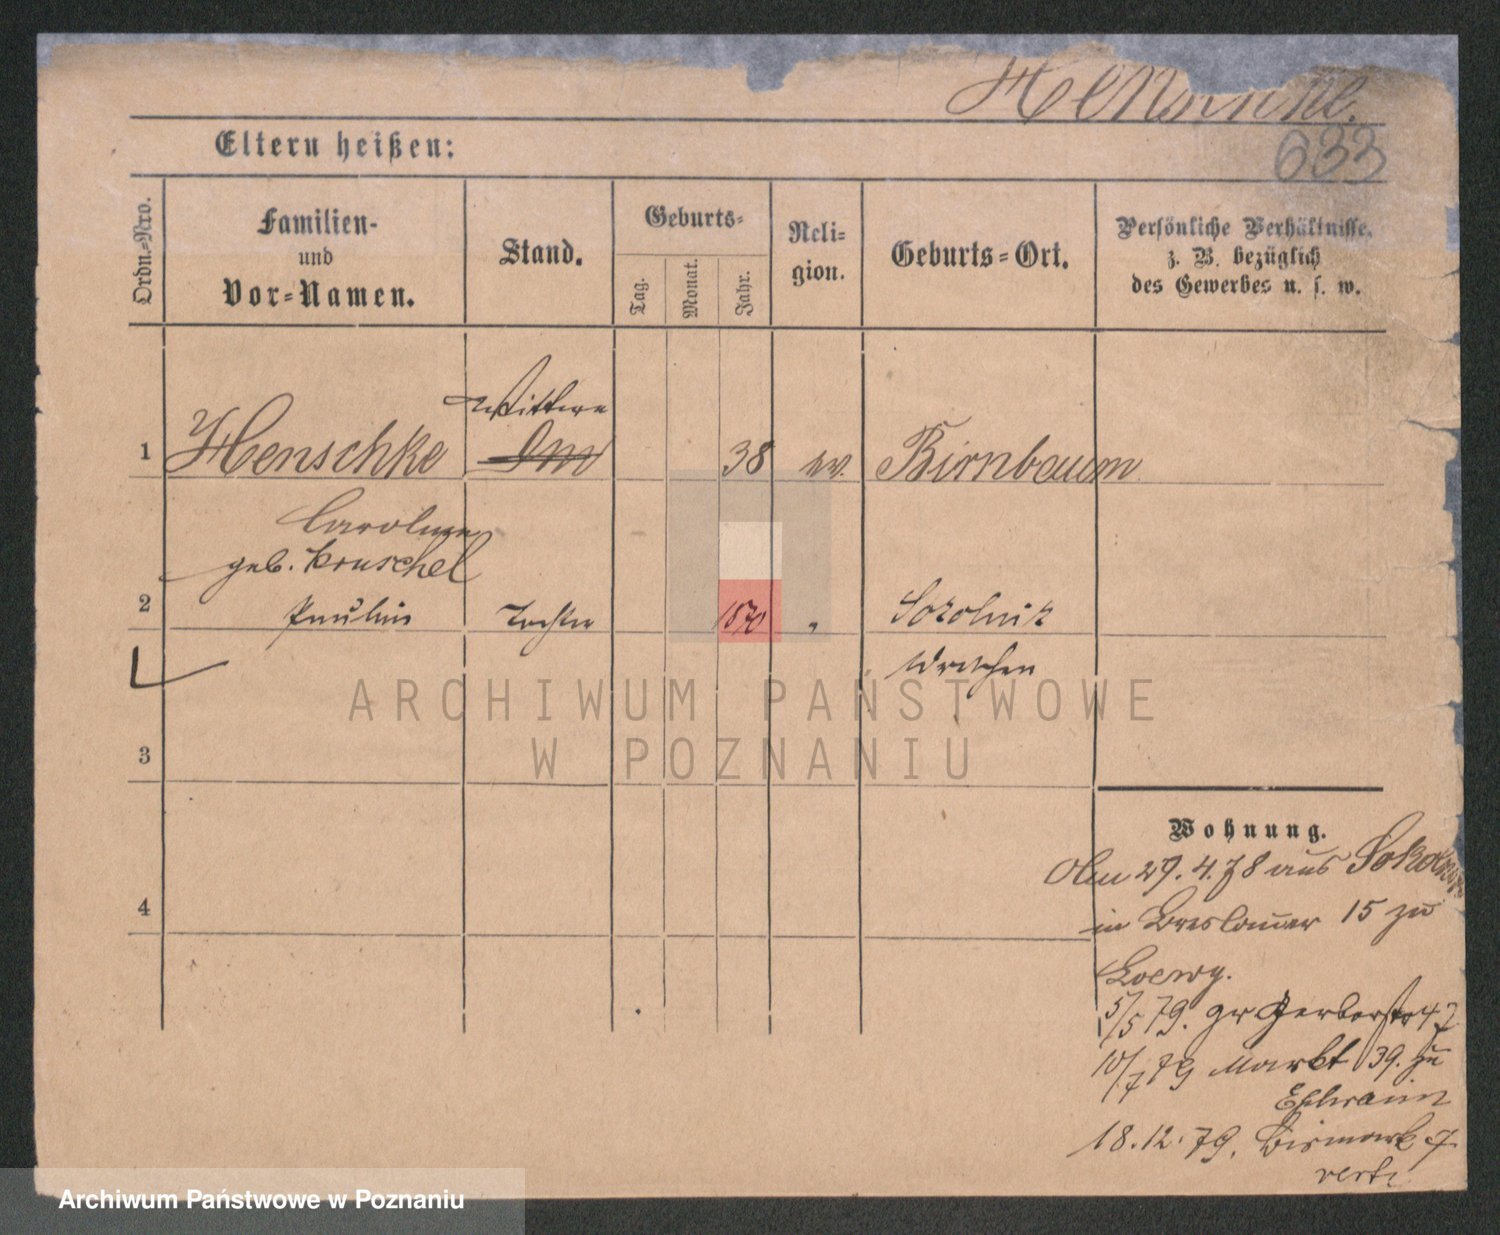 Henschke.
633
Eltern heißen:
Ordn.-Nro.
Familien-
und
Vor-Namen.
Stand.
Geburts-
Tag.
Monat.
Jahr.
Reli-
gion.
Geburts-Ort.
Persönliche Verhältnisse,
z. B. bezüglich
des Gewerbes u. s. w.
Wittwe
1 Henschke 38 ev. Birnbaum
Caroline
geb. Kruschel
2 Paulin Tochter 1870 "
Wreschen
ARCHIWUM PAŃSTWOWE
W POZNANIU
3
Wohnung.
29.4.78 aus
4
in Breslauer 15 zu
Loewy.
5/5 79. gr Gerberstr 47
10/7 79 Markt 39. zu
Ephraim
18.12.79. Bismark 7
verte
Archiwum Państwowe w Poznaniu